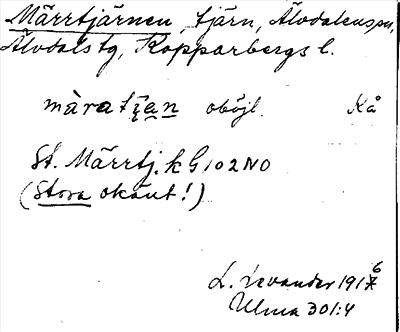 Märrtjärnen, tjärn, Älvdalens sn,
Älvdals tg, Kopparbergs l.
màratįan oböjl. Kå
St. Märrtj. k G 102 NO
(Stora okänt!)
L. Levander 1916
Ulma 301:4